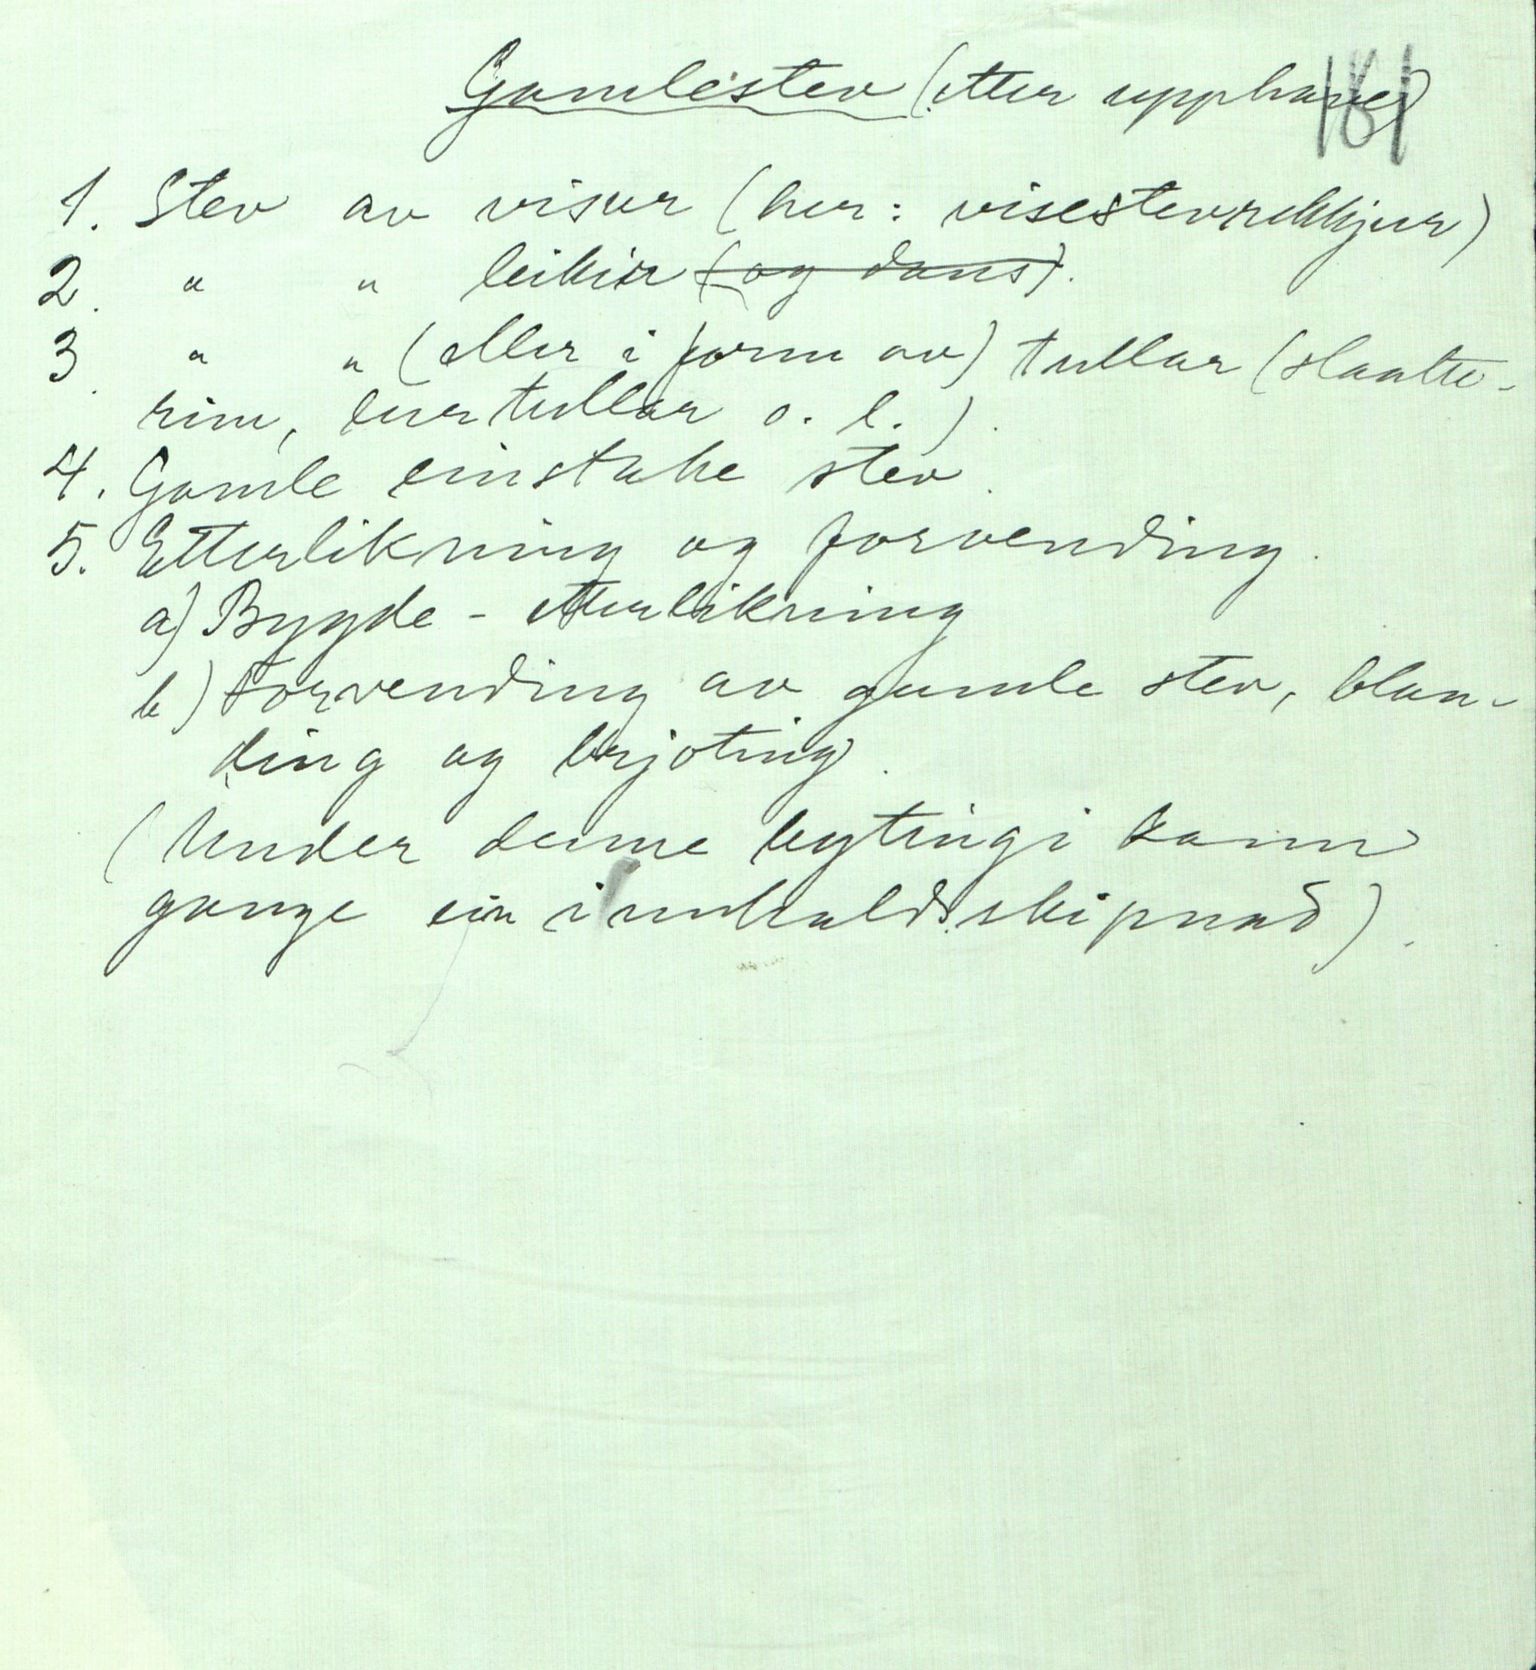 Gamlestev (etter upphavet)
181
1. Stev av visur (her: visestevrekkjur)
2. " " leikir (og dans).
3. " " (eller i form av) tullar (slaatte-
rim, lurtullar o. l.).
4. Gamle einstake stev.
5. Etterlikning og forvending.
a) Bygde-etterlikning
b) Forvending av gamle stev, blan-
ding og brjoting.
(Under denne bytingi kann
gange ein innhaldsskipnad).